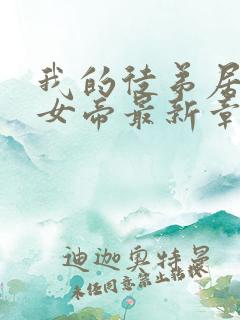 我的徒弟居
女帝最新章
迪迦奥特曼
未经同意禁止转载